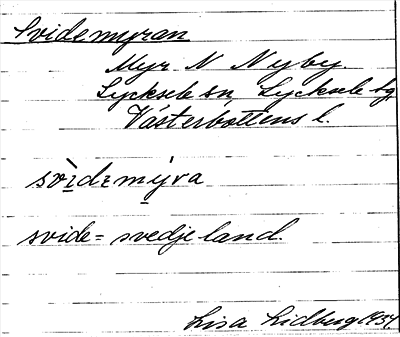 Svidemyran
Myr N Nyby.
Lycksele sn, Lycksele tg,
Västerbottens l.
svìdɛmýra
svide = svedjeland.
Lisa Lidberg 1937